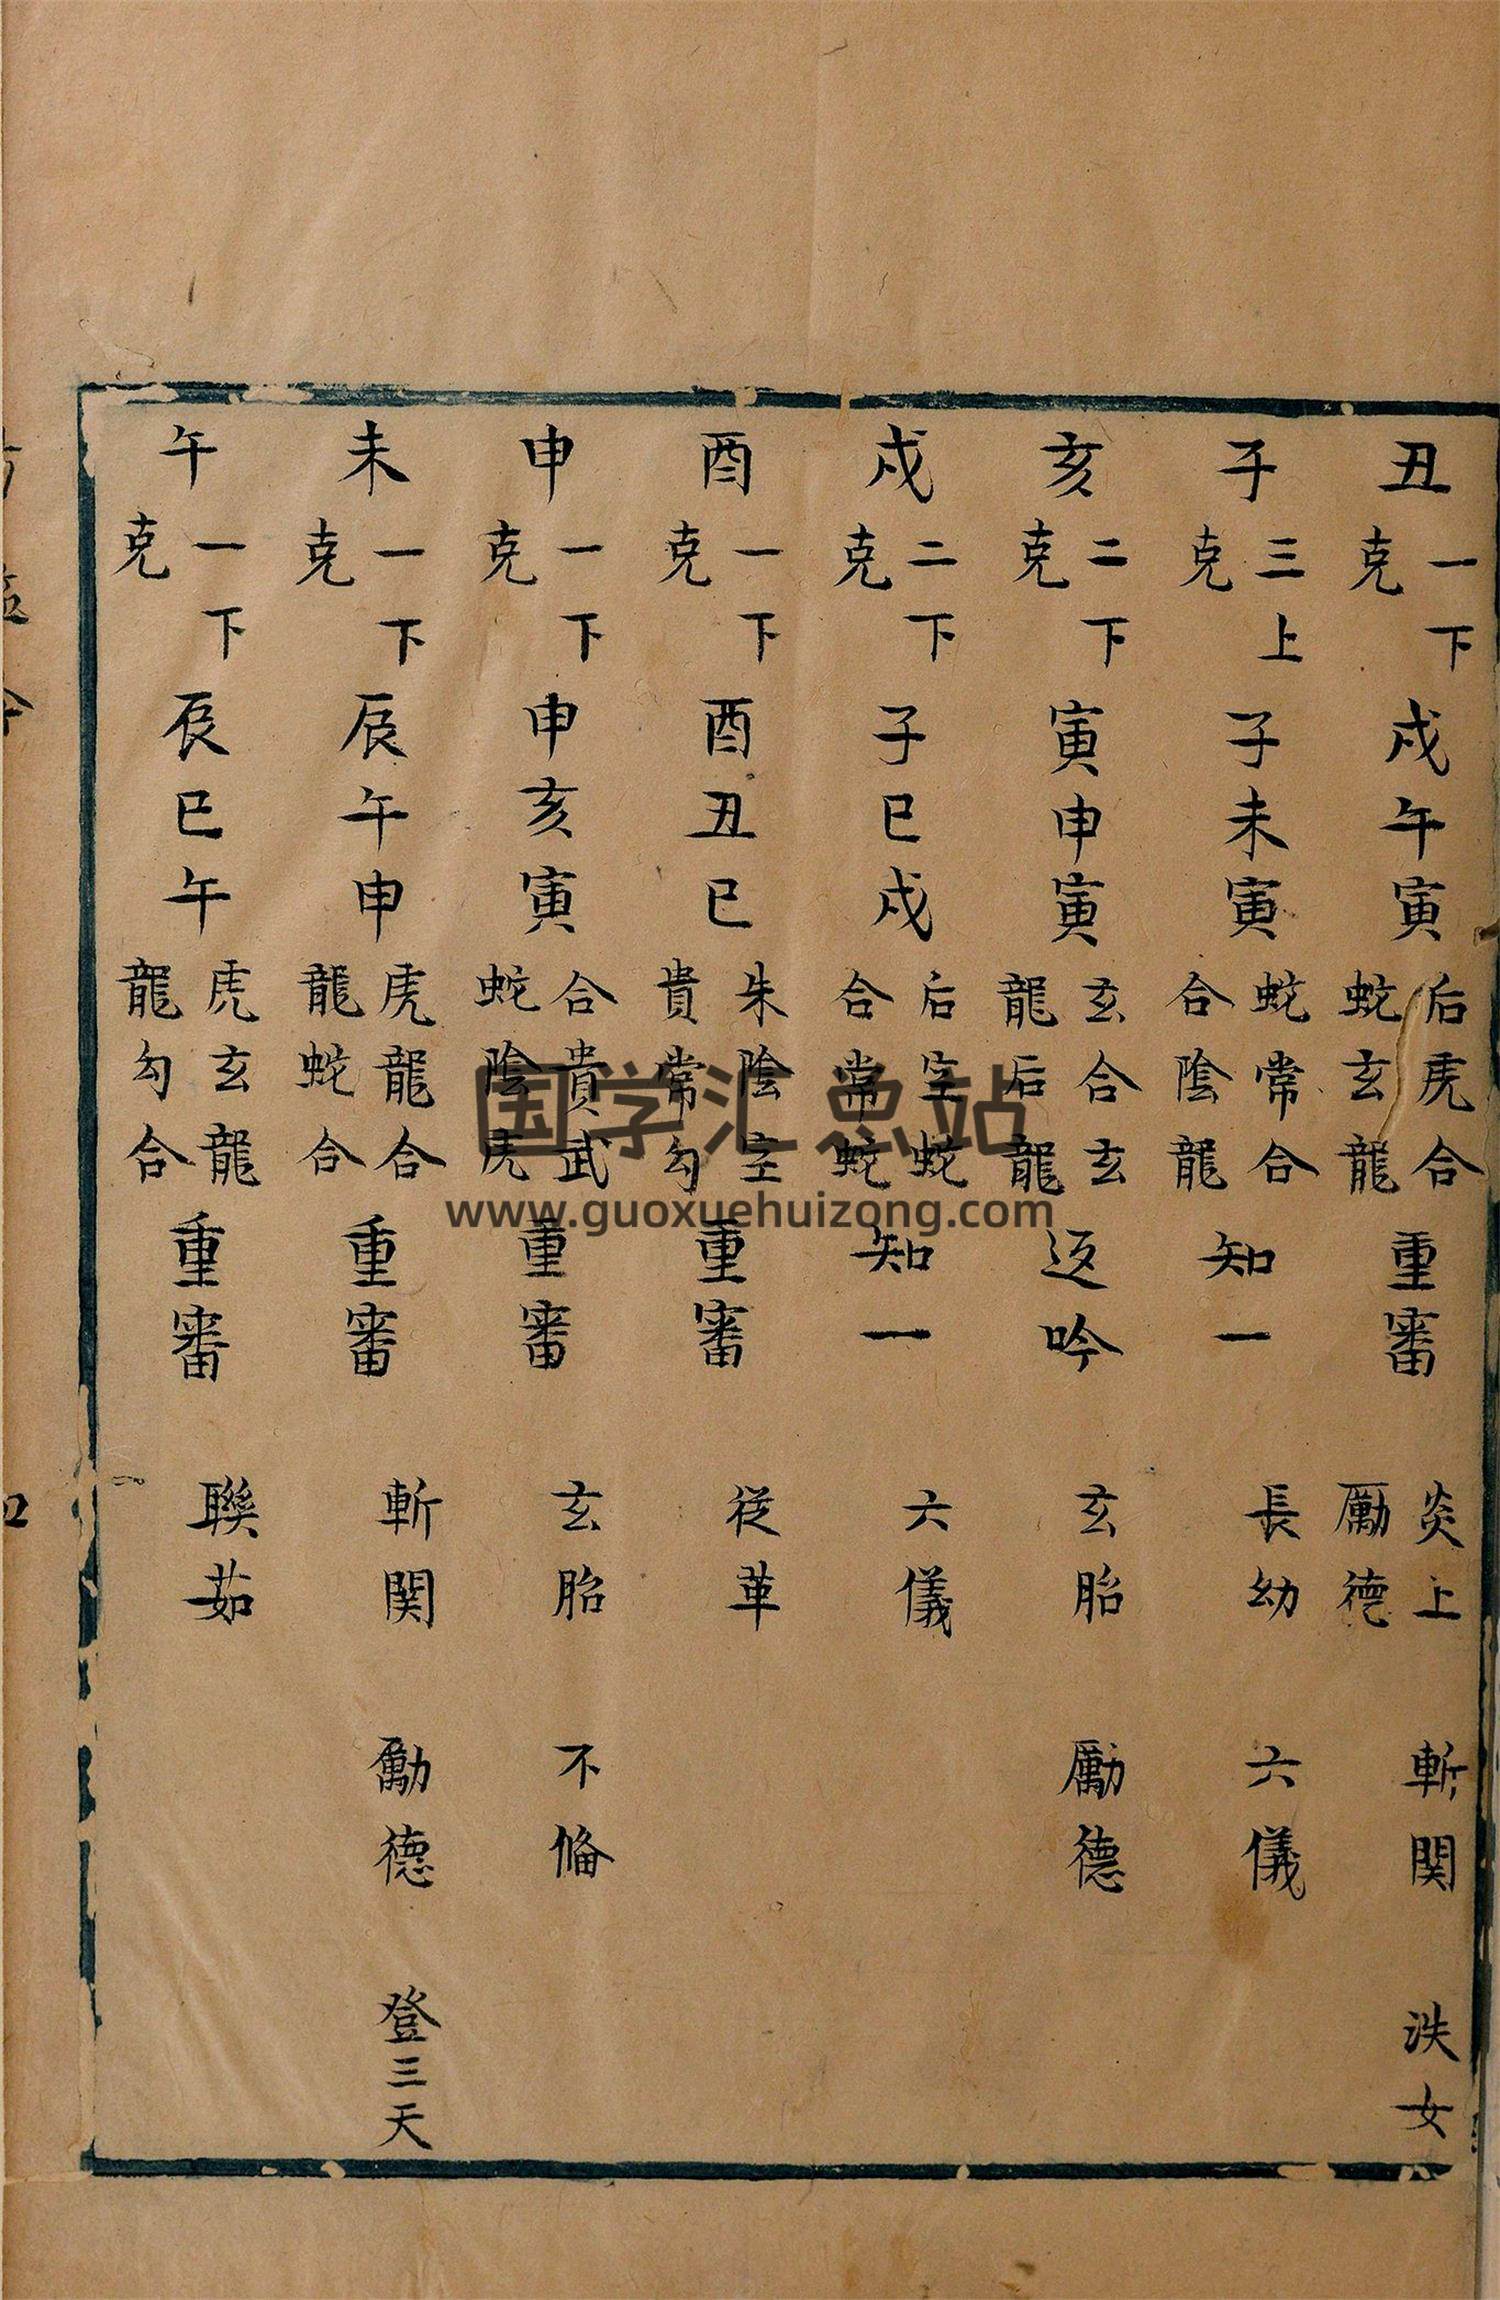 丑 一下克 戌午寅 后虎合 蛇玄龍 重審 炎上 厲德 斬関 泆女
子 三上克 子未寅 蛇常合 合陰龍 知一 長幼 六儀
亥 二下克 寅申寅 玄合玄 龍后龍 返吟 玄胎 厲德
戌 二下克 子巳戌 后空蛇 合常蛇 知一 六儀
酉 一下克 酉丑巳 朱陰空 貴常勾 重審 從革
申 一下克 申亥寅 合貴武 蛇陰虎 重審 玄胎 不俻
未 一下克 辰午申 虎龍合 龍蛇合 重審 斬関 勵德 登三天
午 一下克 辰巳午 虎玄龍 龍勾合 重審 聯茹
国学汇总站
www.guoxuehuizong.com